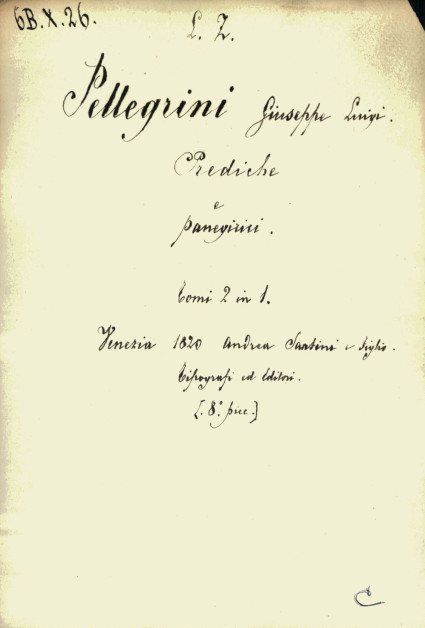 6B.X.26.
L. Z.
Pellegrini Giuseppe Luigi.
Prediche
e
panegirici.
Tomi 2 in 1.
Venezia 1820 Andrea Santini e figlio.
Tipografi ed Editori.
[8.° picc.]